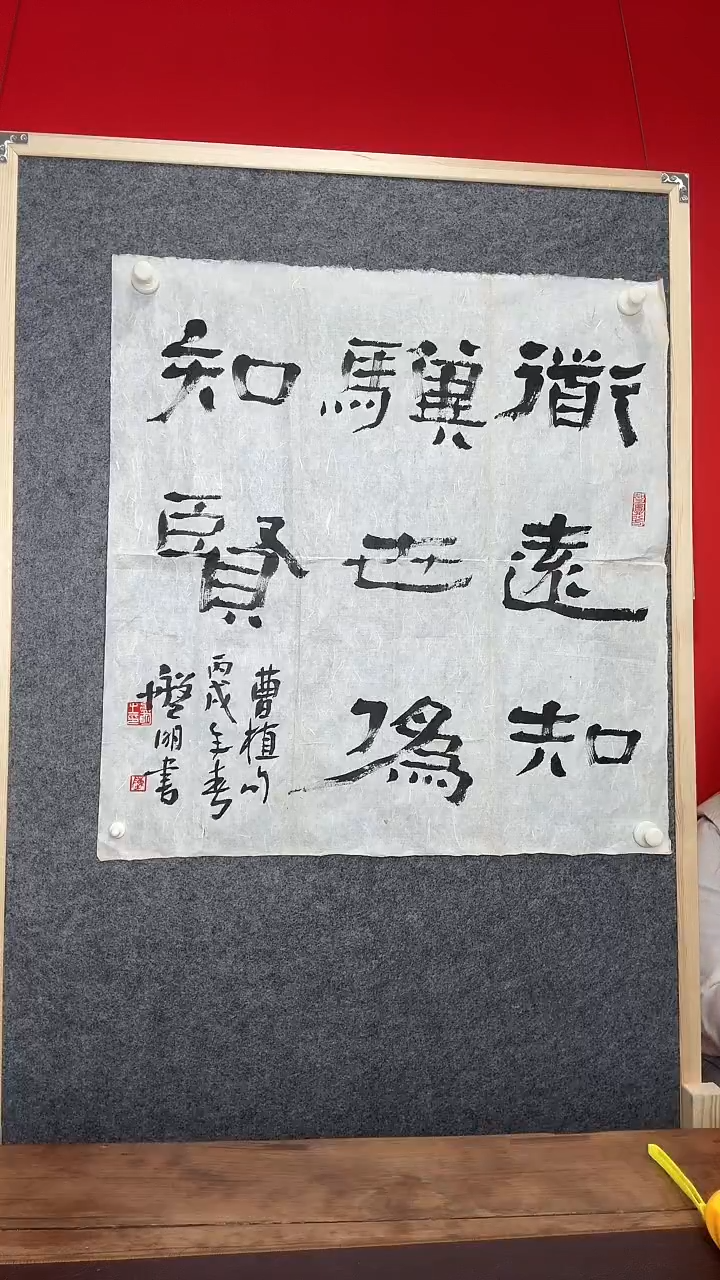 衜遠知
驥世僞
知賢
曹植句
丙戌年春
明書